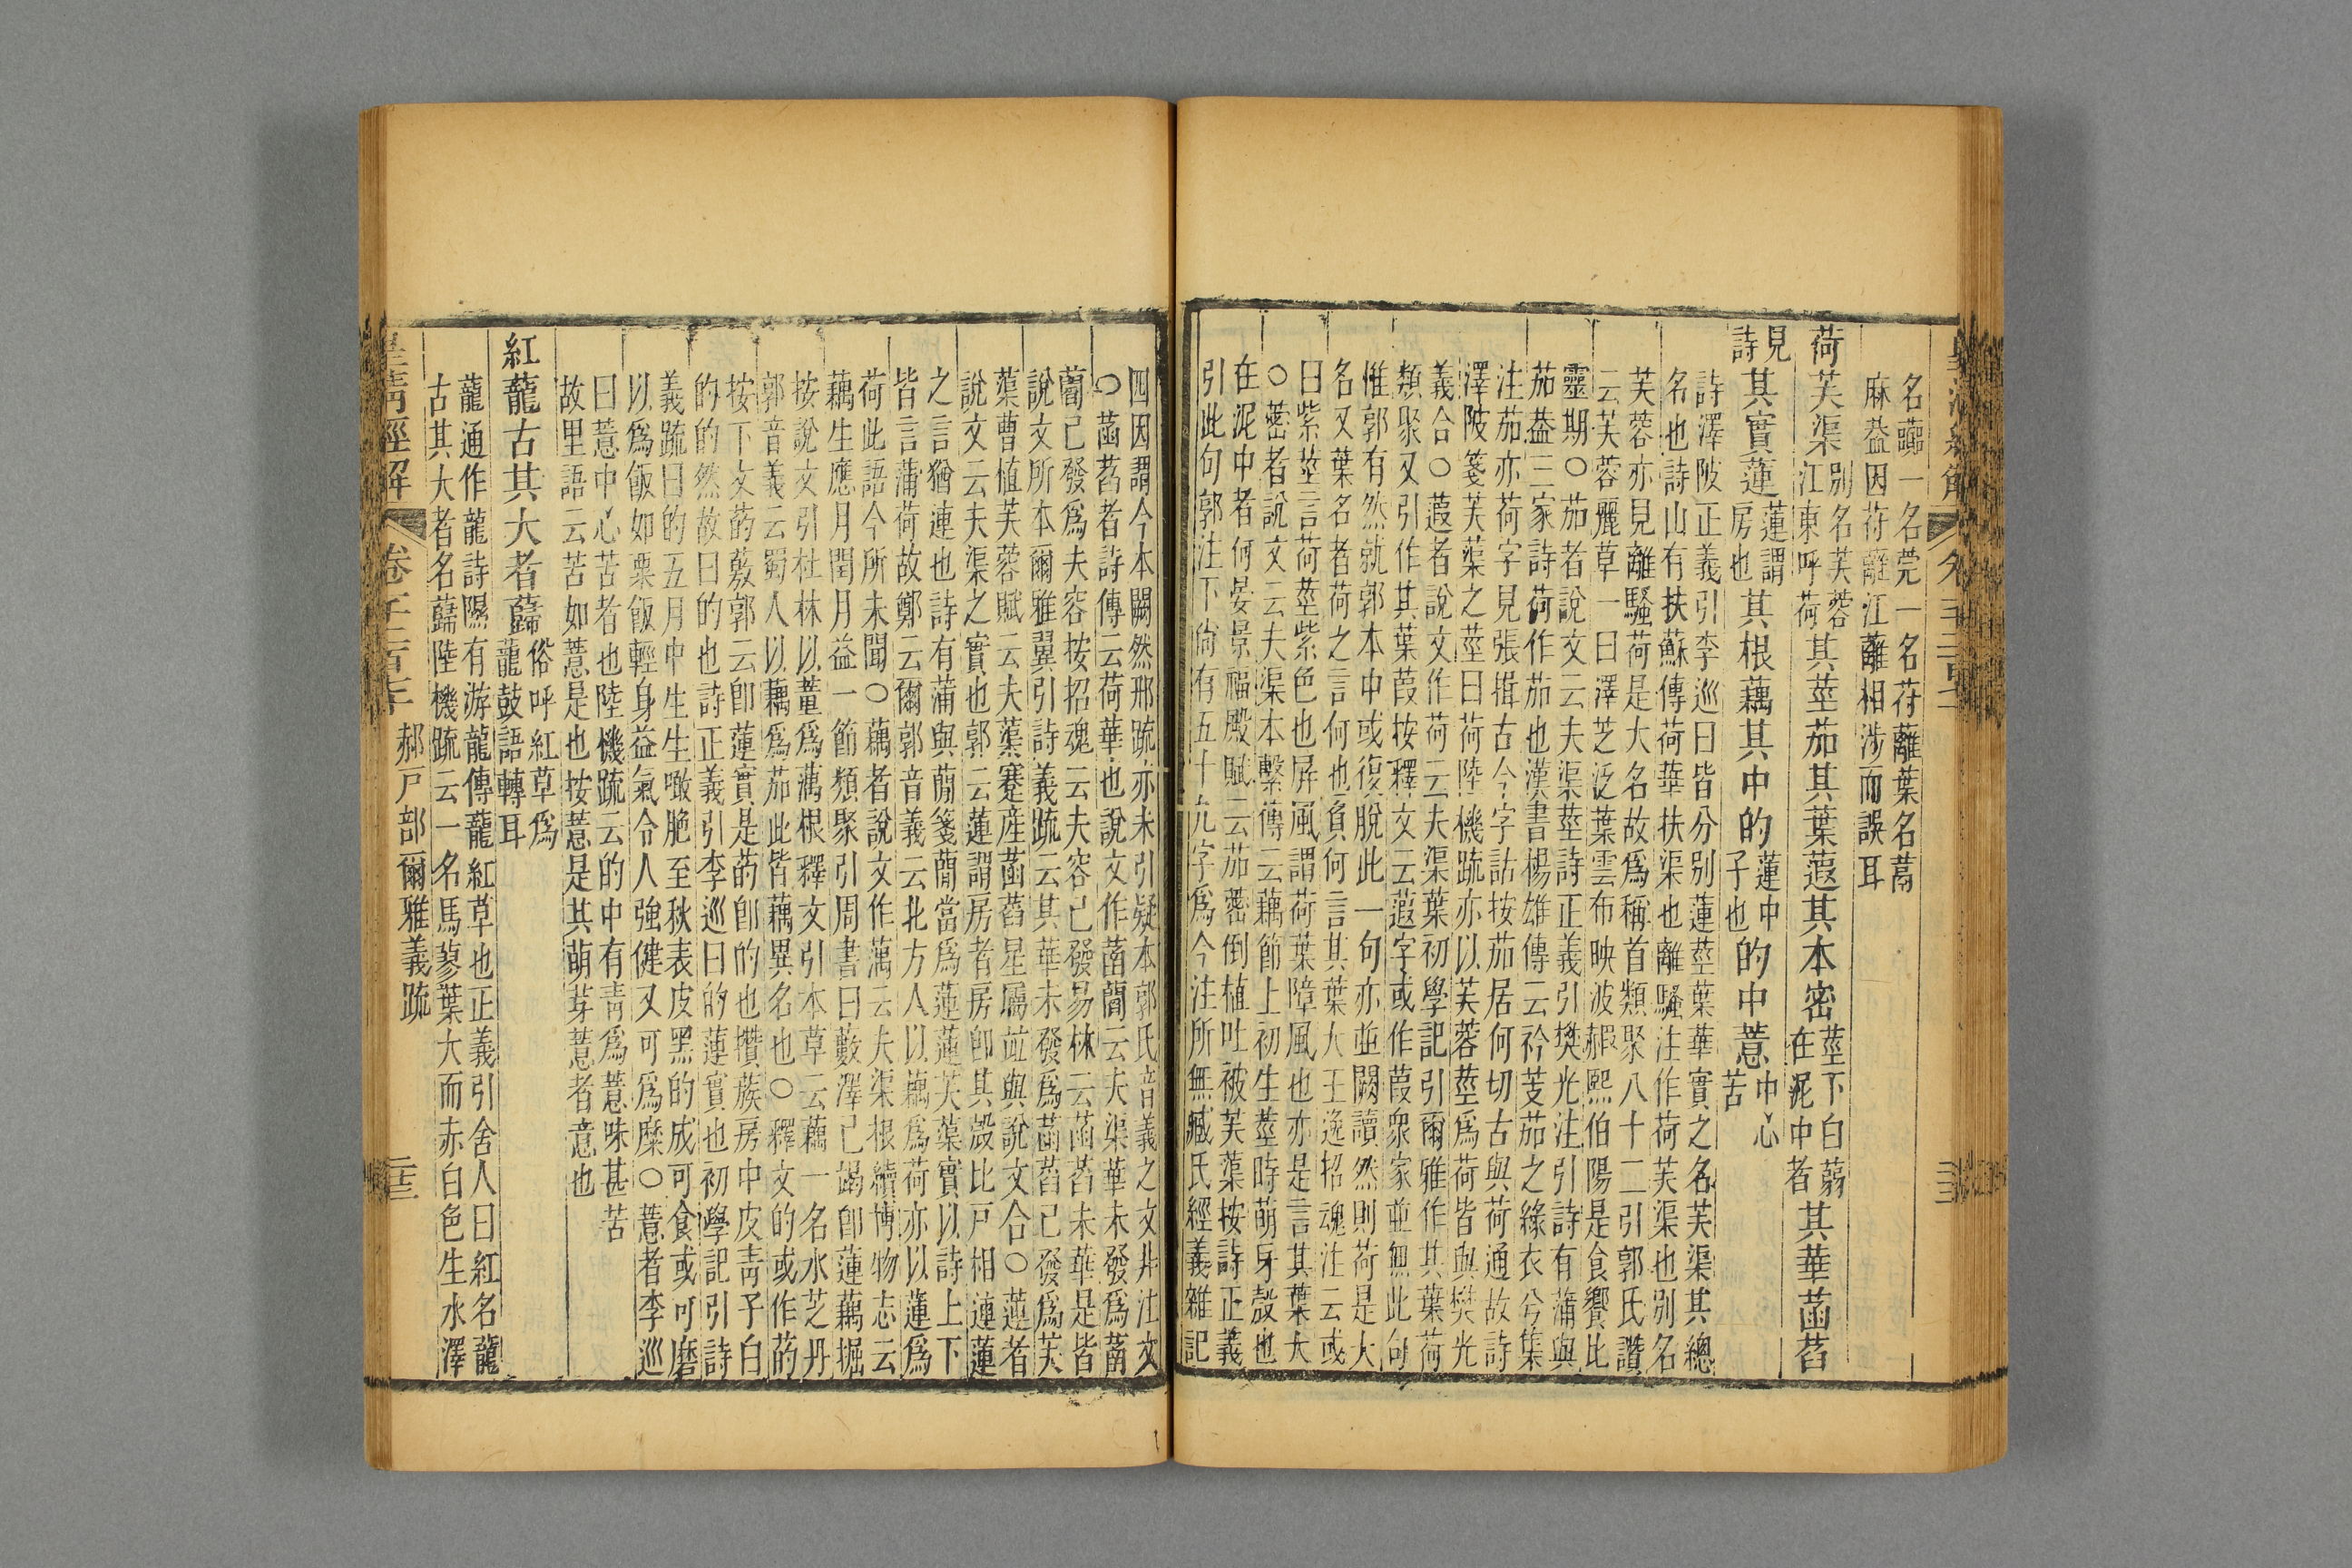 名蘬一名莞一名苻離葉名蒚
麻葢因苻蘺江蘺相涉而誤耳
荷芙渠別名芙蓉江東呼荷其莖茄其葉蕸其本密莖下白蒻在泥中者其華菡萏
見詩其實蓮蓮謂房也其根藕其中的蓮中子也的中薏中心苦
詩澤陂正義引李巡曰皆分別蓮莖葉華實之名芙渠其總
名也詩山有扶蘇傳荷華扶渠也離騷注作荷芙渠也別名
芙蓉亦見離騷荷是大名故爲稱首類聚八十二引郭氏讚
云芙蓉麗草一曰澤芝泛葉雲布映波赮熙伯陽是食饗比
靈期○茄者說文云夫渠莖詩正義引樊光注引詩有蒲與
茄葢三家詩荷作茄也漢書楊雄傳云衿芰茄之綠衣兮集
注茄亦荷字見張揖古今字詁按茄居何切古與荷通故詩
澤陂箋芙蕖之莖曰荷陸機疏亦以芙蓉莖爲荷皆與樊光
義合○蕸者說文作荷云夫渠葉初學記引爾雅作其葉荷
類聚又引作其葉葭按釋文云蕸字或作葭眾家並無此句
惟郭有然就郭本中或復脫此一句亦並闕讀然則荷是大
名又葉名者荷之言何也負何言其葉大王逸招魂注云或
曰紫莖言荷莖紫色也屏風謂荷葉障風也亦是言其葉大
○蔤者說文云夫渠本繫傳云藕節上初生莖時萌牙殼也
在泥中者何晏景福殿賦云茄蔤倒植吐被芙蕖按詩正義
引此句郭注下尙有五十九字爲今注所無臧氏經義雜記
四因謂今本闕然邢疏亦未引疑本郭氏音義之文非注文
○菡萏者詩傳云荷華也說文作菡䕞云夫渠華未發爲菡
䕞已發爲夫容按招魂云夫容已發易林云菡萏未華是皆
說文所本爾雅翼引詩義疏云其華未發爲菡萏已發爲芙
蕖曹植芙蓉賦云夫蕖蹇產菡萏星屬竝與說文合○蓮者
說文云夫渠之實也郭云蓮謂房者房卽其殼比戸相連蓮
之言猶連也詩有蒲與蕑箋蕑當爲蓮蓮芙蕖實以詩上下
皆言蒲荷故鄭云爾郭音義云北方人以藕爲荷亦以蓮爲
荷此語今所未聞○藕者說文作蕅云夫渠根續博物志云
藕生應月閏月益一節類聚引周書曰藪澤已竭卽蓮藕掘
按說文引杜林以蓳爲蕅根釋文引本草云藕一名水芝丹
郭音義云蜀人以藕爲茄此皆藕異名也○釋文的或作菂
按下文菂薂郭云卽蓮實是菂卽的也攢蔟房中皮靑子白
的的然故曰的也詩正義引李巡曰的蓮實也初學記引詩
義疏曰的五月中生生噉脆至秋表皮黑的成可食或可磨
以爲飯如粟飯輕身益氣令人強健又可爲糜○薏者李巡
曰薏中心苦者也陸機疏云的中有靑爲薏味甚苦
故里語云苦如薏是也按薏是其萌芽薏者意也
紅蘢古其大者蘬俗呼紅草爲蘢鼓語轉耳
蘢通作龍詩隰有游龍傳龍紅草也正義引舍人曰紅名蘢
古其大者名蘬陸機疏云一名馬蓼葉大而赤白色生水澤
皇淸經解 卷千二百 郝戸部爾雅義疏 二十三